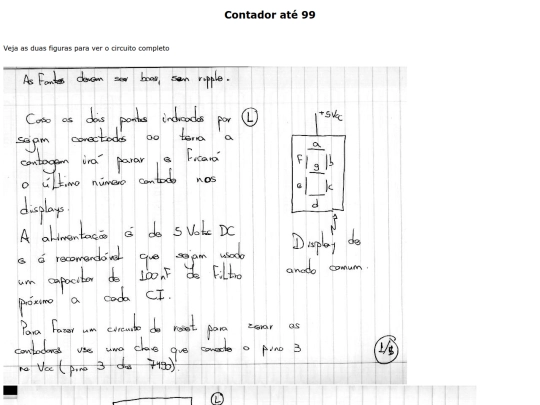 Contador até 99
Veja as duas figuras para ver o circuito completo
As Fontes devem ser boas, sem ripple.
Caso os dois pontos indicados por (L)
sejam conectados ao terra a
contagem irá parar e ficará
o último número contado nos
displays.
A alimentação é de 5 Volts DC
e é recomendável que sejam usado
um capacitor de 100nF de Filtro
próximo a cada CI.
Para fazer um circuito de reset para zerar os
contadores use uma chave que conecte o pino 3
no Vcc (pino 3 dos 7490).
+5Vcc
a
f g b
e c
d
Display de
anodo comum.
L